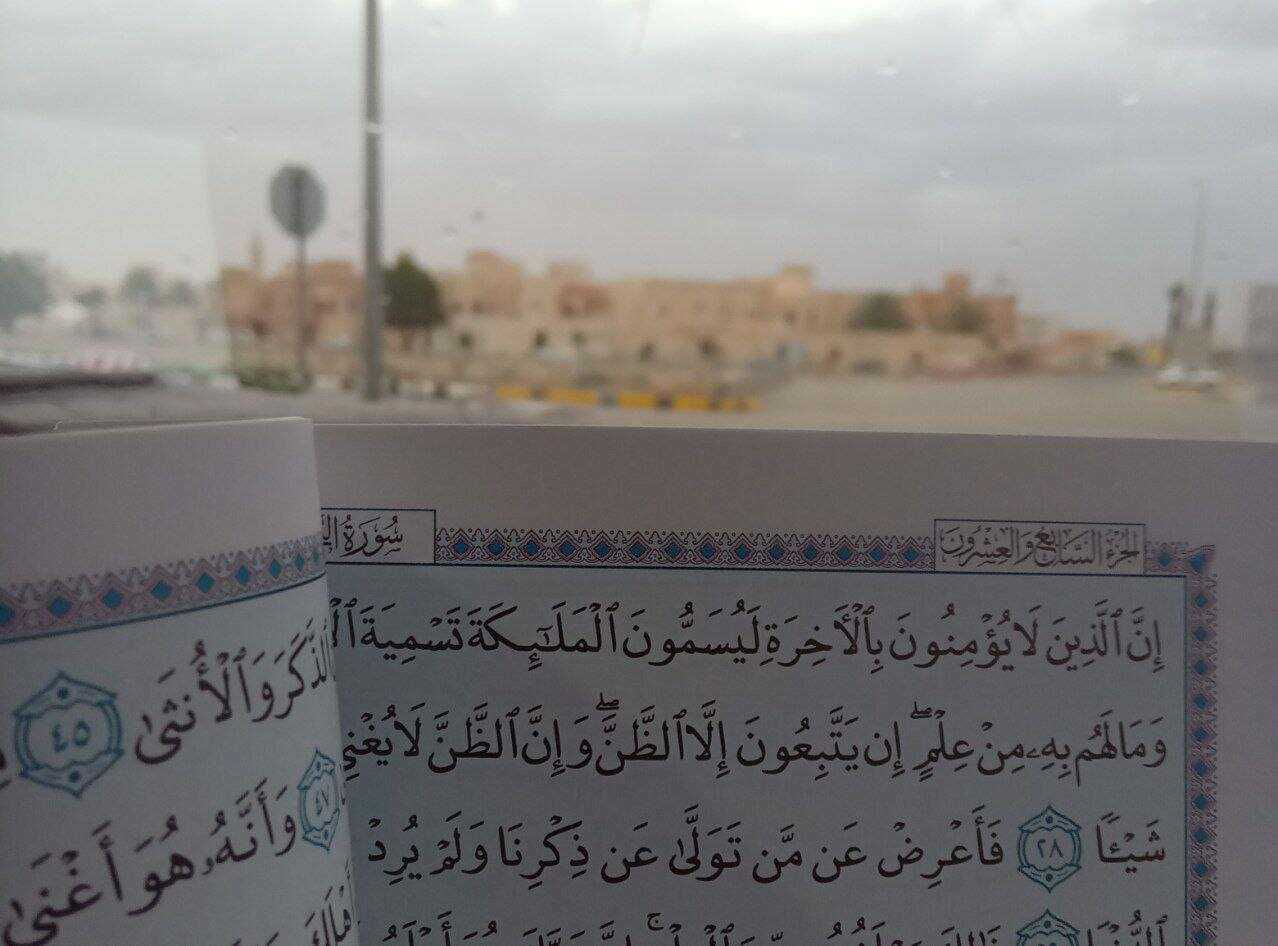 الجزء السابع والعشرون
سُورَةُ
إِنَّ ٱلَّذِينَ لَا يُؤْمِنُونَ بِٱلْأَخِرَةِ لَيُسَمُّونَ ٱلْمَلَـٰٓئِكَةَ تَسْمِيَةَ
وَمَا لَهُم بِهِۦ مِنْ عِلْمٍ ۖ إِن يَتَّبِعُونَ إِلَّا ٱلظَّنَّ ۖ وَإِنَّ ٱلظَّنَّ لَا يُغْنِي
شَيْـًٔا ٢٨ فَأَعْرِضْ عَن مَّن تَوَلَّىٰ عَن ذِكْرِنَا وَلَمْ يُرِدْ
ٱلذَّكَرَ وَٱلْأُنثَىٰ ٤٥
٤٧ وَأَنَّهُۥ هُوَ أَغْنَىٰ